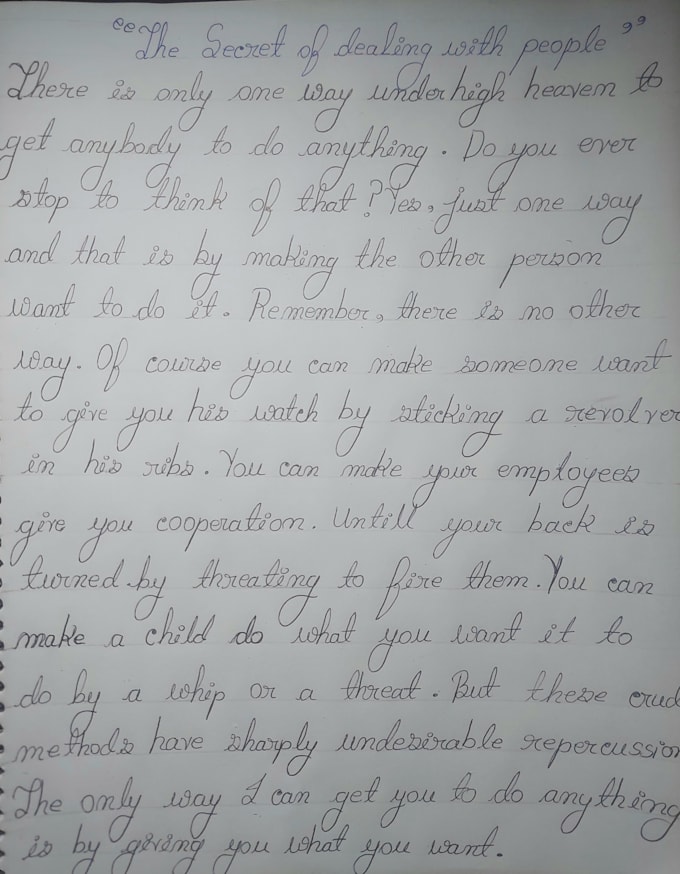 "The Secret of dealing with people"
There is only one way under high heaven to
get anybody to do anything. Do you ever
stop to think of that? Yes, just one way
and that is by making the other person
want to do it. Remember, there is no other
way. Of course you can make someone want
to give you his watch by sticking a revolver
in his ribs. You can make your employees
give you cooperation. Untill your back is
turned by threating to fire them. You can
make a child do what you want it to
do by a whip or a threat. But these crud
methods have sharply undesirable repercussion
The only way I can get you to do anything
is by giving you what you want.